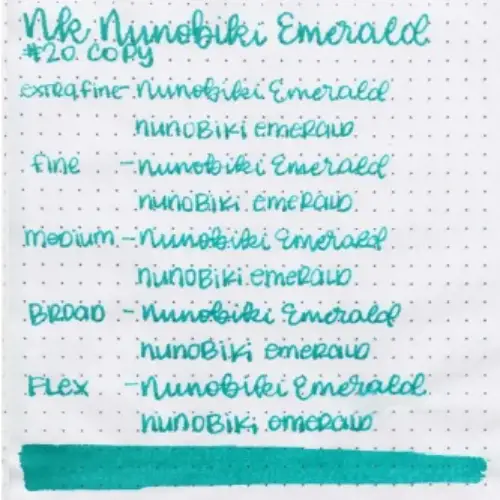 Nk Nunobiki Emerald
#20 COPY
extra fine - Nunobiki Emerald
nunoBiki emerald
fine - nunobiki Emerald
nunoBiki emerald
medium - Nunobiki Emerald
nunoBiki emerald
Broad - Nunobiki Emerald
nunoBiki emerald
Flex - Nunobiki Emerald
nunoBiki emerald